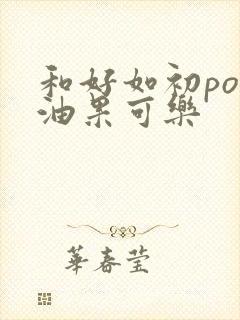 和好如初po
油果可樂
華春莹